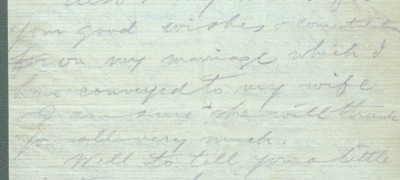 your good wishes & congratulation
for on my marriage which I
have conveyed to my wife
I am sure she will thank
you all very much.
Well to tell you a little